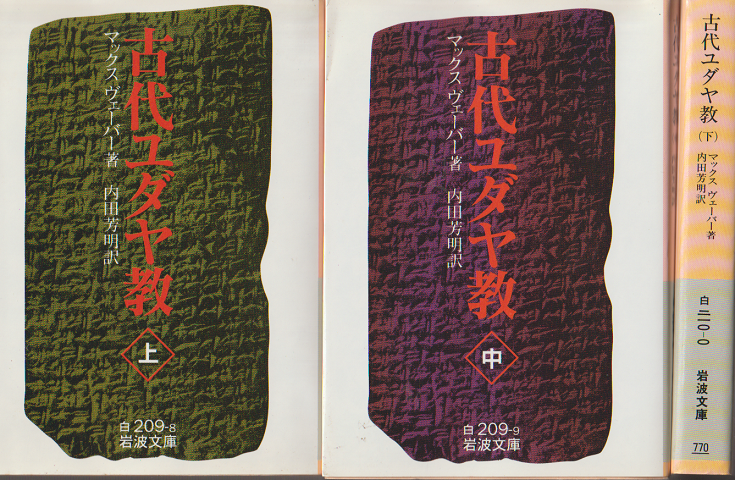 古代ユダヤ教
マックス ヴェーバー著 内田芳明訳
上
白209-8
岩波文庫
古代ユダヤ教
マックス ヴェーバー著 内田芳明訳
中
白209-9
岩波文庫
古代ユダヤ教(下)
マックス ヴェーバー著
内田芳明訳
白二一〇-0
岩波文庫
770